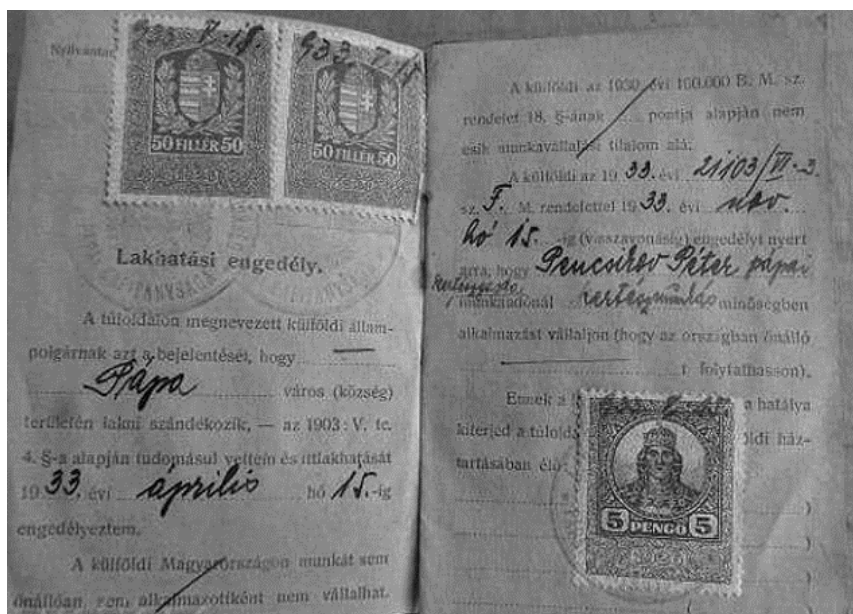 933. 7-15.
933. 7-15
50 FILLÉR 50
50 FILLÉR 50
Lakhatási engedély.
A túloldalon megnevezett külföldi állam-
polgárnak azt a bejelentését, hogy
Pápa város (község)
területén lakni szándékozik, — az 1903: V. tc.
4. §-a alapján tudomásul vettem és ittlakhatását
1933. évi április hó 15.-ig
engedélyeztem.
A külföldi Magyarországon munkát sem
önállóan, sem alkalmazottként nem vállalhat.
A külföldi az 1930. évi 100.000 B. M. sz.
rendelet 18. §-ának pontja alapján nem
esik munkavállalási tilalom alá.
A külföldi az 1933. évi 21103/VI-3.
sz. F. M. rendelettel 1933. évi nov.
hó 15.-ig (visszavonásig) engedélyt nyert
arra, hogy Pencsikov Péter pápai
munkaadónál kertészmunkás minőségben
alkalmazást vállaljon (hogy az országban önálló
-t folytathasson).
Ennek a a hatálya
kiterjed a túlolda ldi ház-
tartásában élő
5 PENGŐ 5